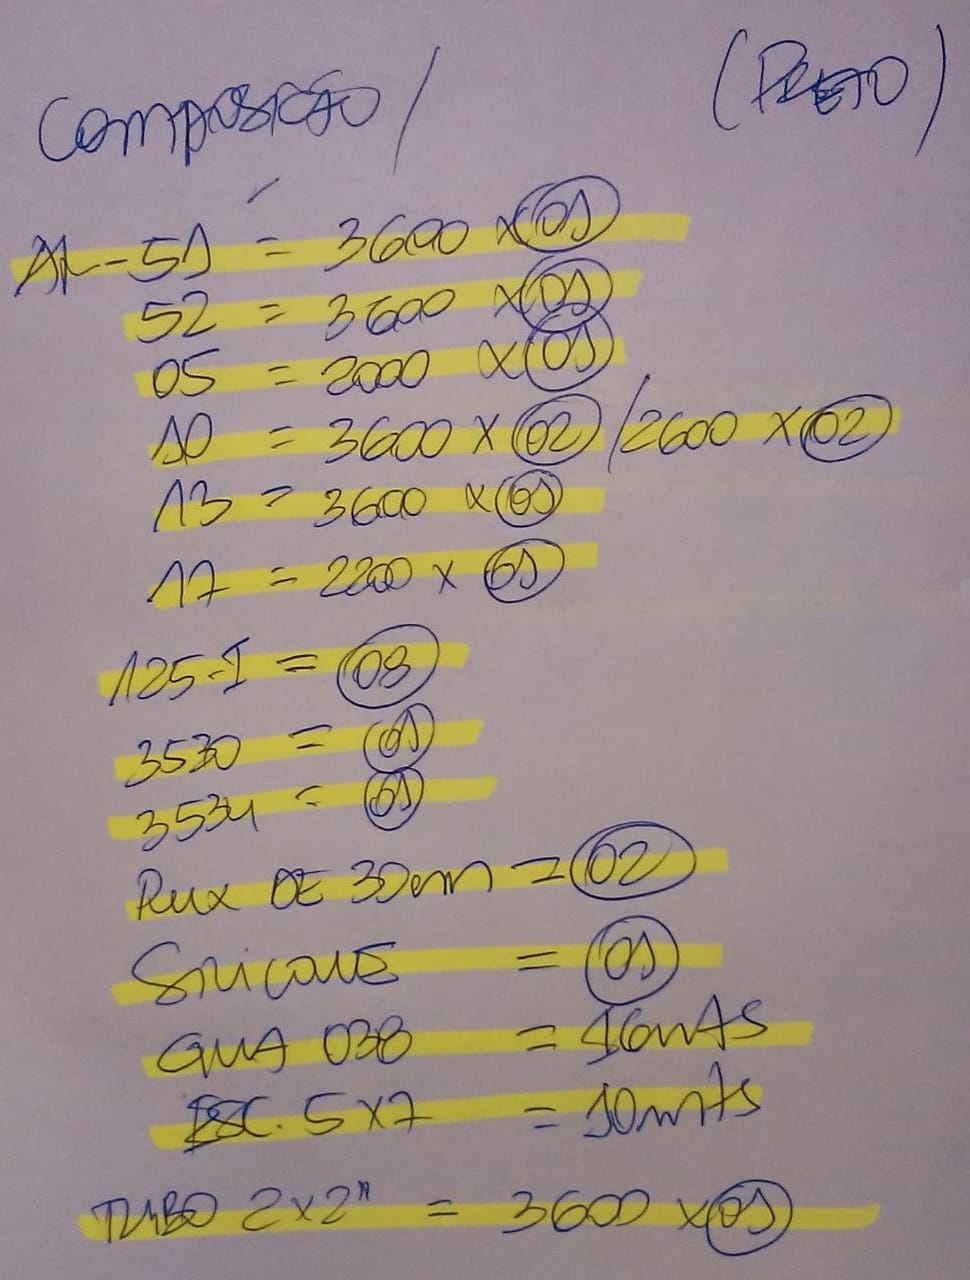 COMPOSIÇÃO / (PRETO)
AL-51 = 3600 x 01
52 = 3600 x 01
05 = 2000 x 01
10 = 3600 x 02 / 2600 x 02
13 = 3600 x 01
17 = 2200 x 01
125-I = 08
3530 = 01
3534 = 01
PUX DE 30cm = 02
SILICONE = 01
GUA 038 = 16mts
ESC. 5x7 = 10mts
TUBO 2x2" = 3600 x 01